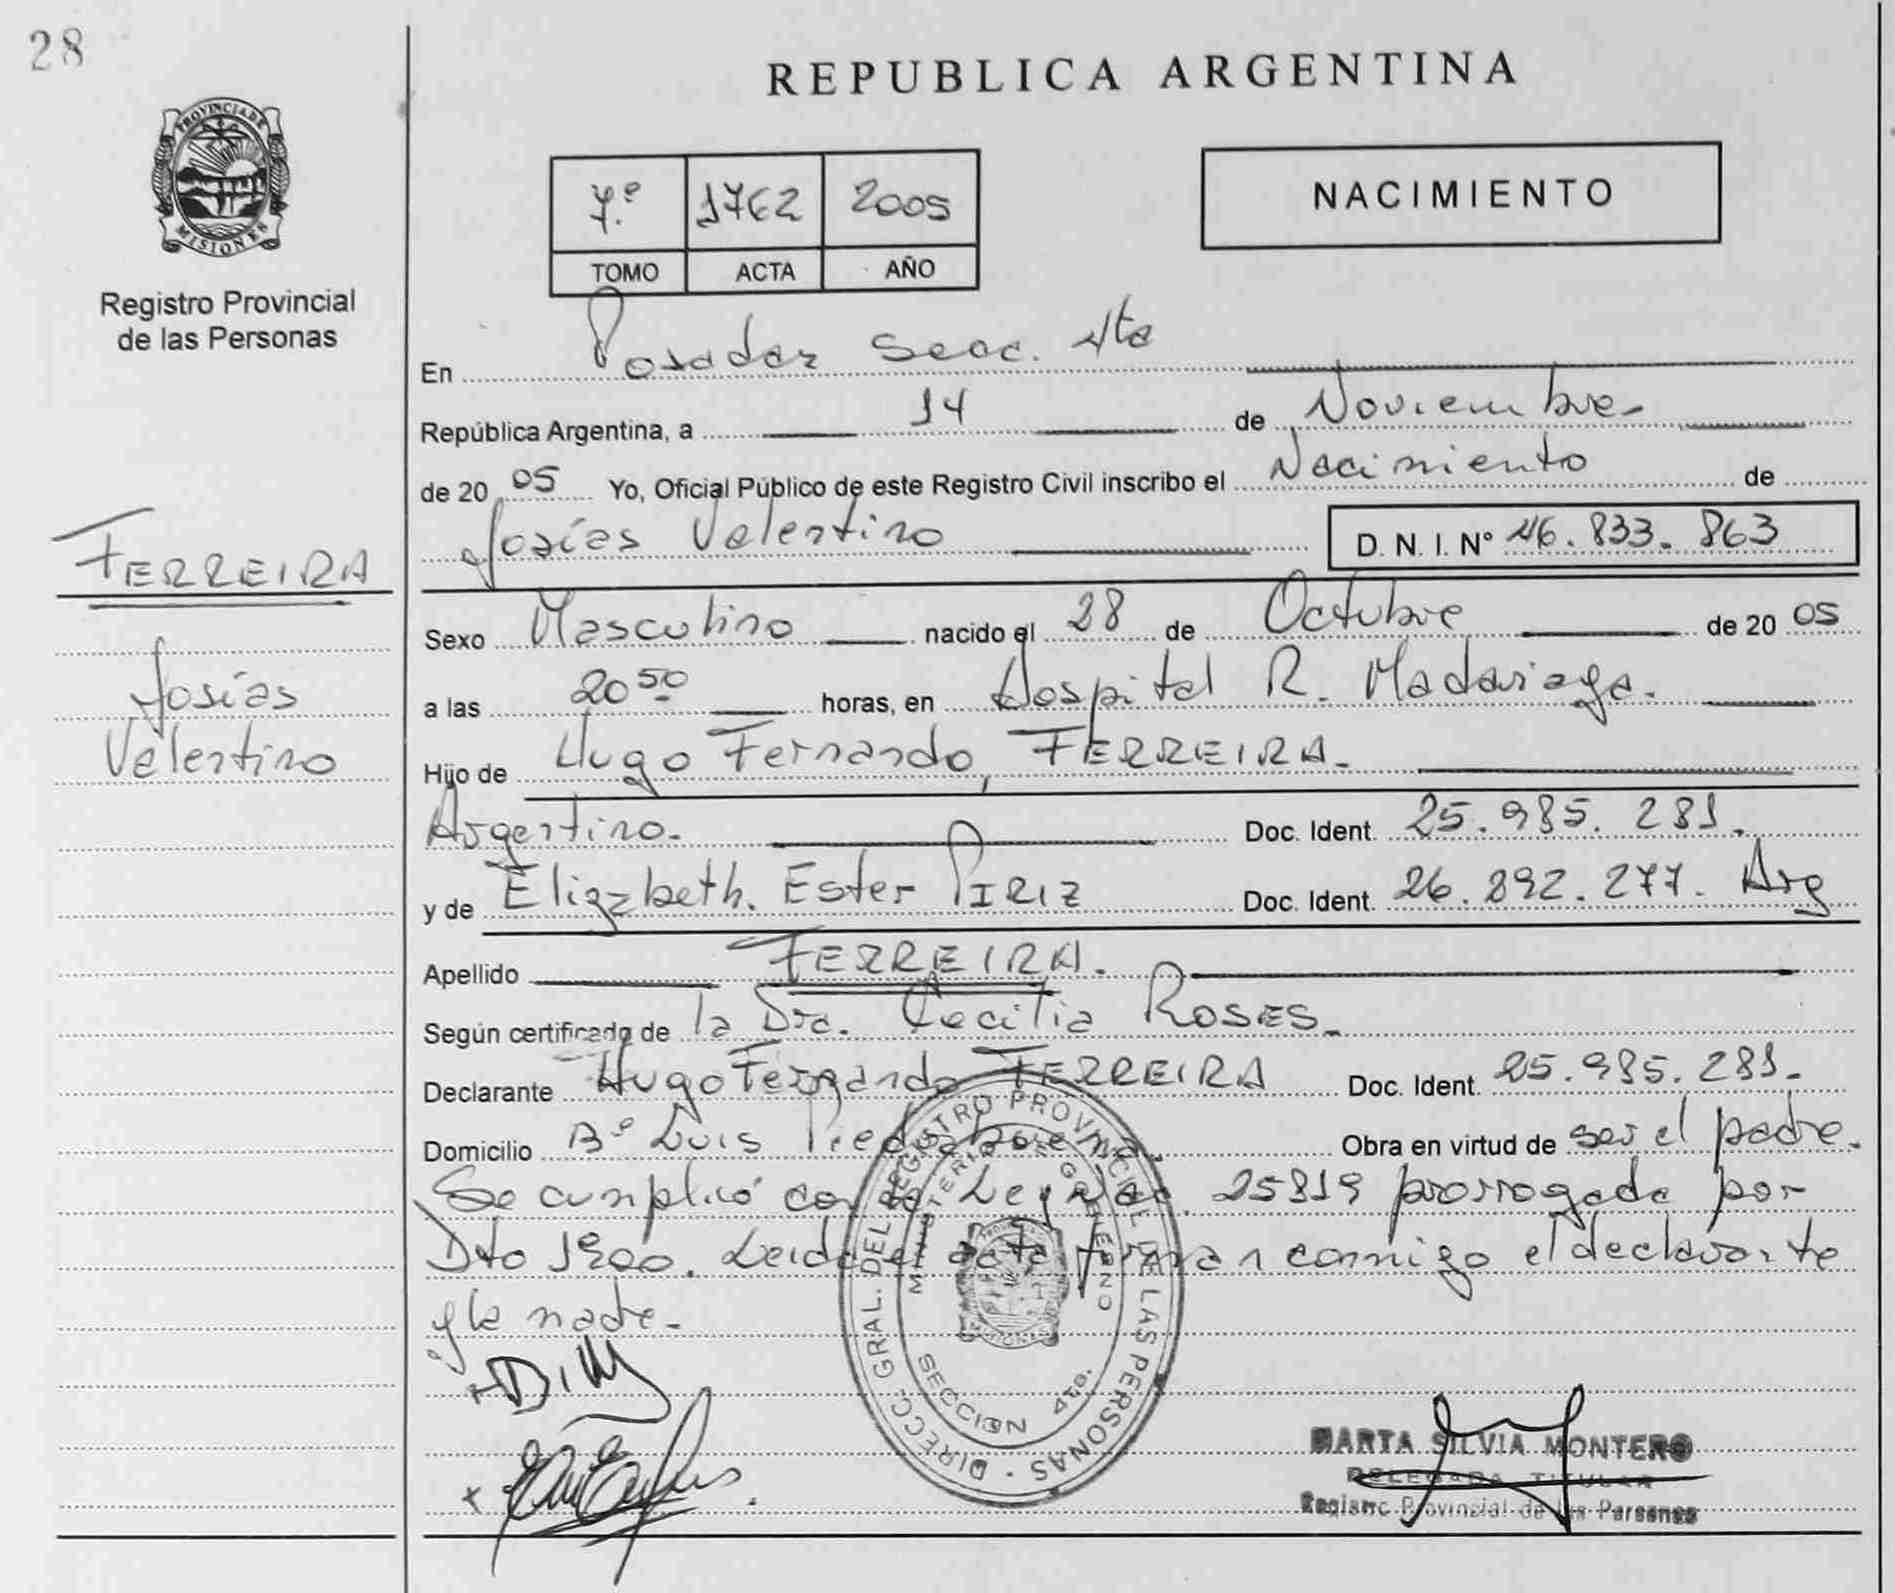 28
PROVINCIA DE
MISIONES
Registro Provincial
de las Personas
FERREIRA
Josías
Valentino
REPUBLICA ARGENTINA
7.º 1762 2005
TOMO ACTA AÑO
NACIMIENTO
En Posadas Secc. 4ta
República Argentina, a 14 de Noviembre
de 20 05 Yo, Oficial Público de este Registro Civil inscribo el Nacimiento de
Josías Valentino D. N. I. Nº 46.833.863
Sexo Masculino nacido el 28 de Octubre de 20 05
a las 20 50 horas, en Hospital R. Madariaga.
Hijo de Hugo Fernando, FERREIRA.
Argentino. Doc. Ident. 25.985.281.
y de Elizabeth. Ester PIRIZ Doc. Ident. 26.892.277. Arg
Apellido FERREIRA.
Según certificado de la Dra. Cecilia ROSES.
Declarante Hugo Fernando FERREIRA Doc. Ident. 25.985.281.
Domicilio Bº Luis Piedrabuena. Obra en virtud de ser el padre.
Se cumplió con la Ley Nac. 25819 prorrogada por
Dto 1900. Leida el acta firman conmigo el declarante
y la madre.
DIRECC. GRAL. DEL REGISTRO PROVINCIAL DE LAS PERSONAS
MINISTERIO DE GOBIERNO
SECCION 4ta.
MARTA SILVIA MONTERO
DELEGADA TITULAR
Registro Provincial de las Personas